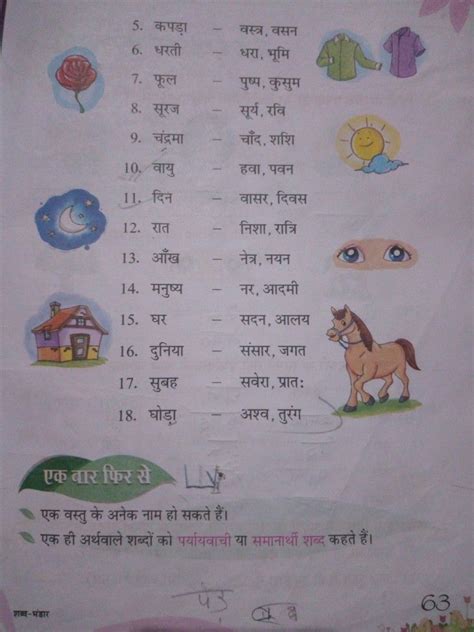 5. कपड़ा – वस्त्र, वसन
6. धरती – धरा, भूमि
7. फूल – पुष्प, कुसुम
8. सूरज – सूर्य, रवि
9. चंद्रमा – चाँद, शशि
10. वायु – हवा, पवन
11. दिन – वासर, दिवस
12. रात – निशा, रात्रि
13. आँख – नेत्र, नयन
14. मनुष्य – नर, आदमी
15. घर – सदन, आलय
16. दुनिया – संसार, जगत
17. सुबह – सवेरा, प्रात:
18. घोड़ा – अश्व, तुरंग
एक बार फिर से
एक वस्तु के अनेक नाम हो सकते हैं।
एक ही अर्थवाले शब्दों को पर्यायवाची या समानार्थी शब्द कहते हैं।
शब्द-भंडार
63